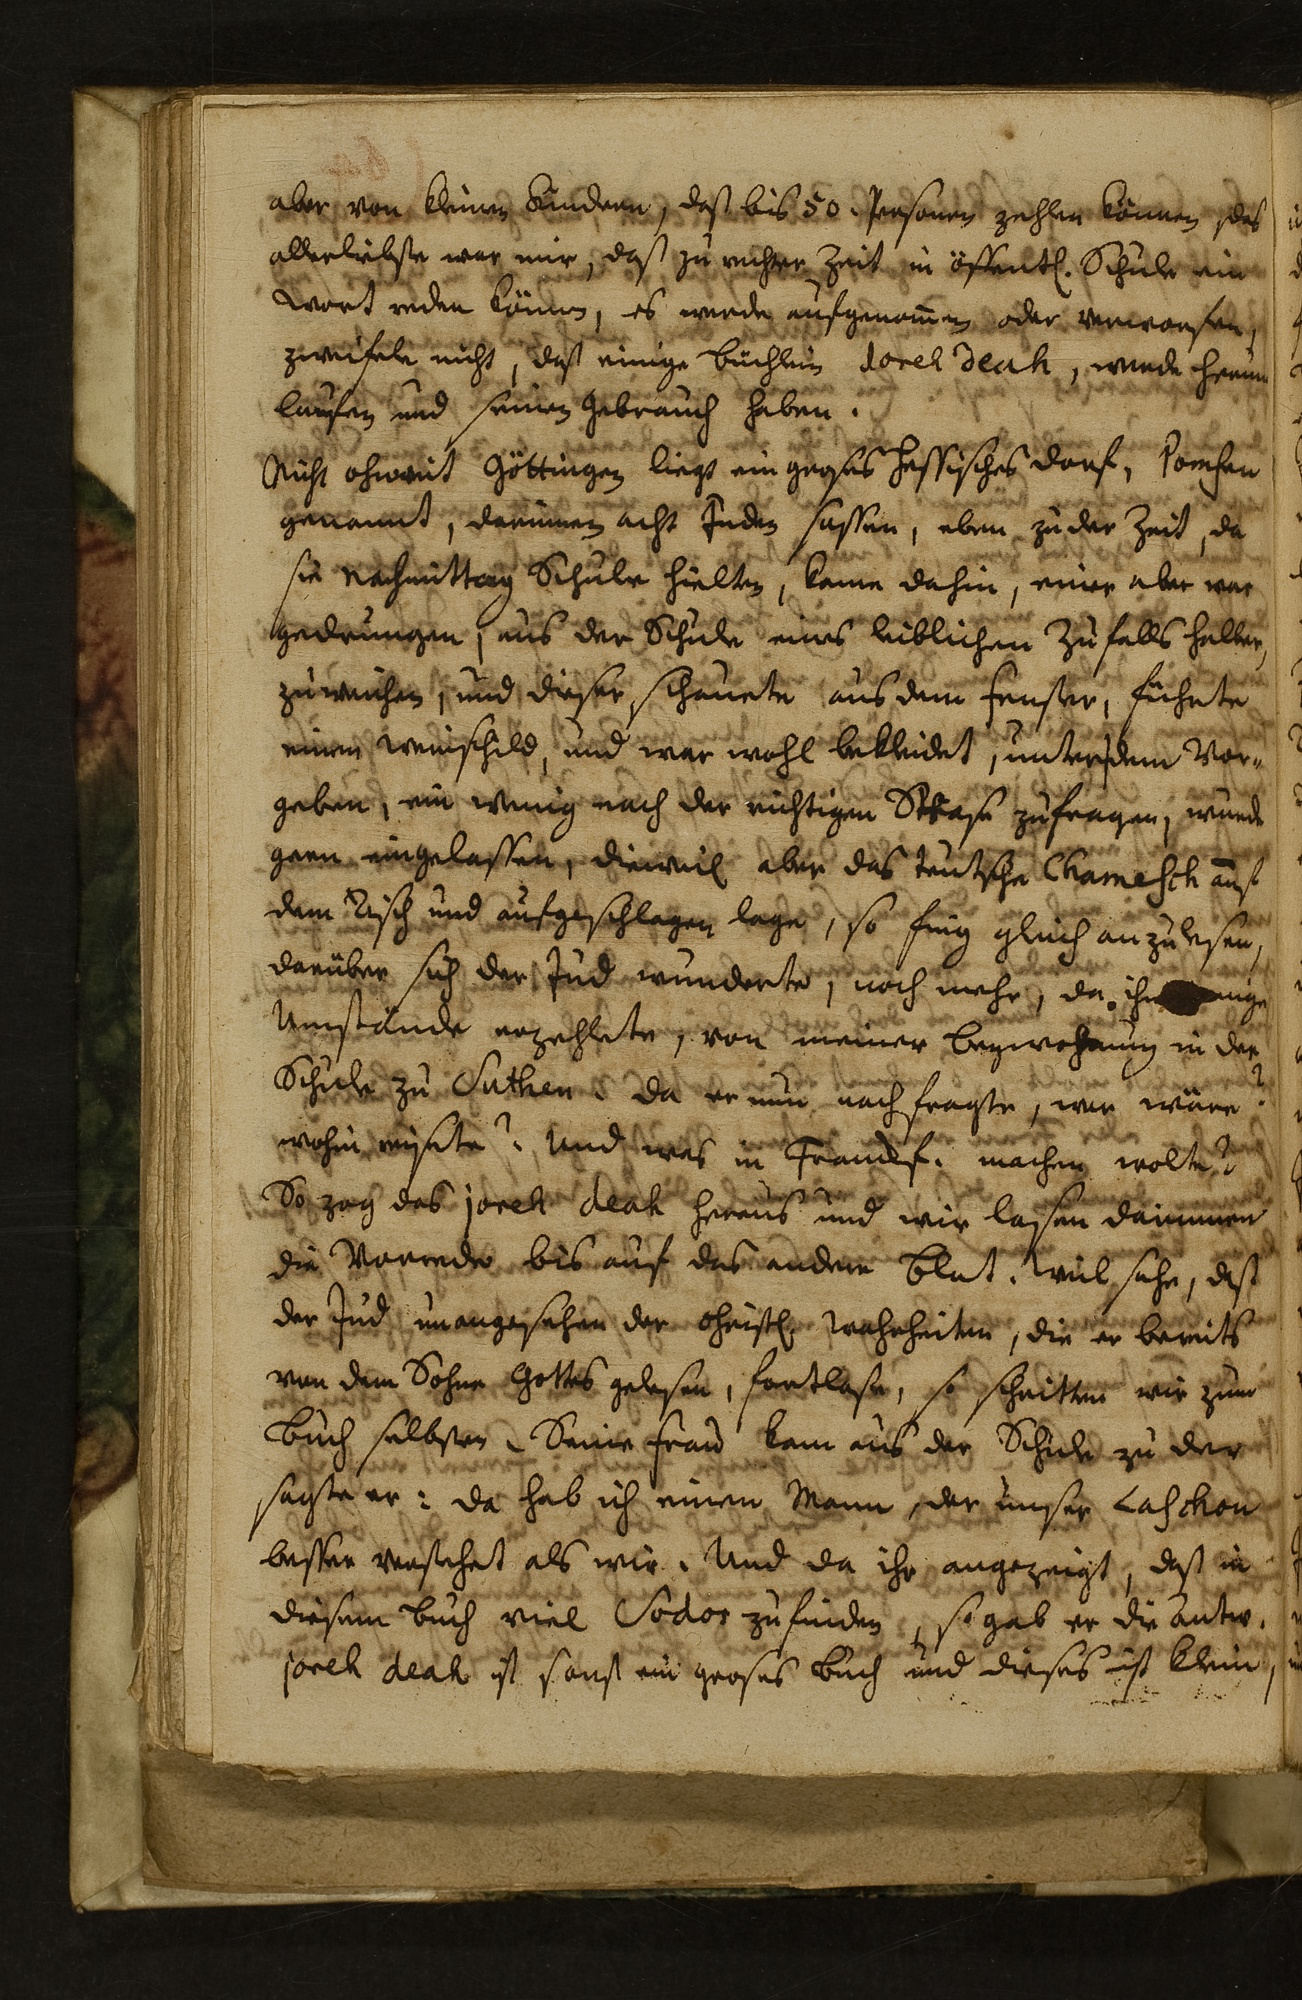 aber von kleinen Kindern, daß bis 50. Personen zehlen können, das
allerliebste war mir, daß zu rechter Zeit in öffentl. Schule ein
Wort reden können, es werde aufgenom̄en oder verworfen,
zweifele nicht, daß einige büchlein Joreh deah, werde herum
lauffen und seinen Gebrauch haben.
Nicht ohnweit Göttingen liegt ein großes Hessisches dorf,
genannt, darinnen acht Juden sassen, eben zu der Zeit, da
sie Nachmittag Schule hielten, kame dahin, einer aber war
gedrungen, aus der Schule eines leiblichen Zufalls halber,
zu weichen, und dieser schauete aus dem Fenster, führete
einen Weinschild, und war wohl bekleidet, unter dem Vor-
geben, ein wenig nach der richtigen Strase zufragen, wurde
gern eingelassen, dieweil aber das teutsche Chamesch auf
dem Tisch und aufgeschlagen lage, so fing gleich an zu lesen,
darüber sich der Jud wunderte, noch mehr, da ihm einige
Umstände erzehlete, von meiner beywohnung in der
Schule zu Suthen. da er nun nach fragte, wer wäre?
wohin reisete? Und was in Franckf. machen wolte?
So zog das joreh deah heraus und wir lasen darinnen
die Vorrede bis auf das andere blat. Weil sahe, daß
der Jud unangesehen der christl. Wahrheiten, die er bereits
von dem Sohne Gottes gelesen, fortlase, so schritten wir zum
buch selbsten. Seine Frau kam aus der Schule zu der
sagte er: da hab ich einen Mann, der unser Laschon
besser verstehet als wir. Und da ihr angezeigt, daß in
diesem buch viel Sodos zu finden, so gab er die antw.
joreh deah ist sonst ein groses buch und dieses ist klein,